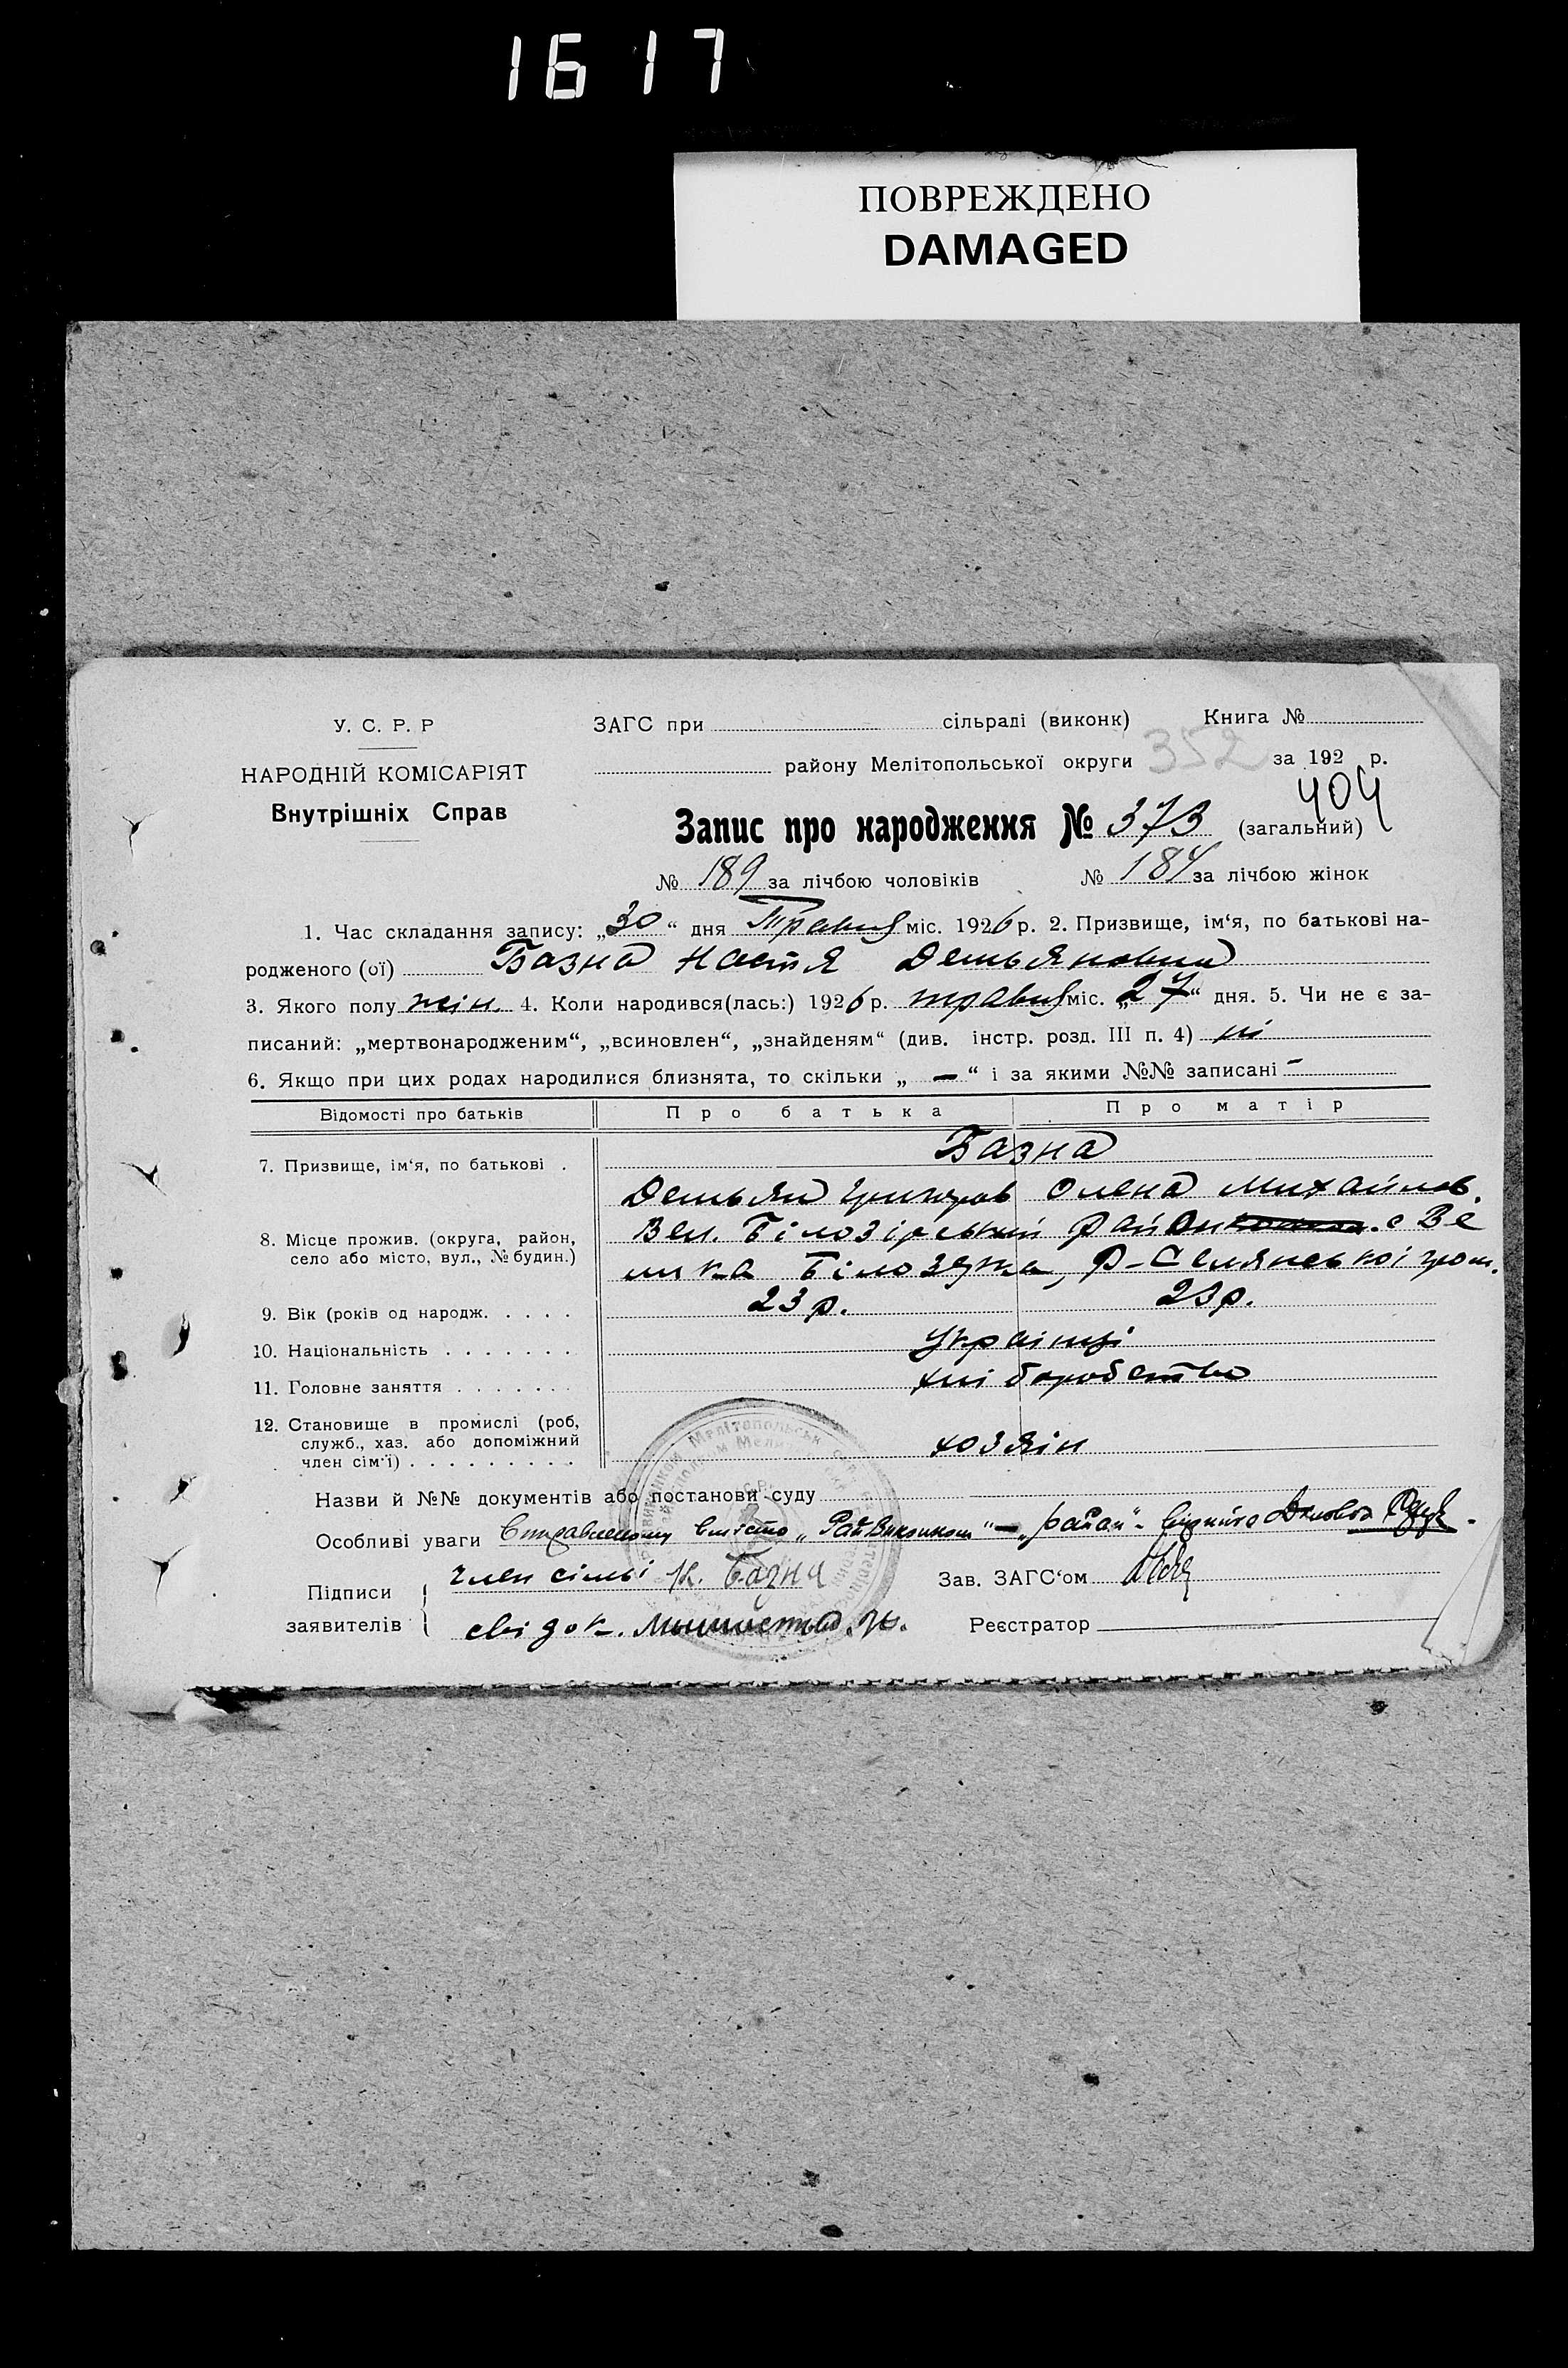 1617
ПОВРЕЖДЕНО
DAMAGED
У. С. Р. Р
НАРОДНІЙ КОМІСАРІЯТ
Внутрішніх Справ
ЗАГС при сільраді (виконк) Книга №
району Мелітопольської округи 352 за 192 р.
404
Запис про народження № 373 (загальний)
№ 189 за лічбою чоловіків № 184 за лічбою жінок
1. Час складання запису: „30“ дня Травня міс. 1926 р. 2. Призвище, ім‘я, по батькові на-
родженого (ої) Базна Настя Демьяновна
3. Якого полу жін. 4. Коли народився(лась:) 1926 р. травня міс. „27“ дня. 5. Чи не є за-
писаний: „мертвонародженим“, „всиновлен“, „знайденям“ (див. інстр. розд. III п. 4) ні
6. Якщо при цих родах народилися близнята, то скільки „ — “ і за якими №№ записані –
Відомості про батьків Про батька Про матір
7. Призвище, ім‘я, по батькові . Базна
Демьян Григоров Олена Михайлов.
8. Місце прожив. (округа, район,
село або місто, вул., № будин.)
Вел. Білозірський район с Ве
лика Білозерка, Р-Семянської гром.
9. Вік (років од народж. . . . . 23 р. 23 р.
10. Національність . . . . . . . Українці
11. Головне заняття . . . . . . . хліборобство
12. Становище в промислі (роб,
служб., хаз. або допоміжний
член сім‘ї) . . . . . . . . . хозяін
Назви й №№ документів або постанови суду
Особливі уваги вмісто „Райвиконком“ — „район“
Підписи
заявителів
член сімьі К. Базна
свідок.
Зав. ЗАГС‘ом
Реєстратор